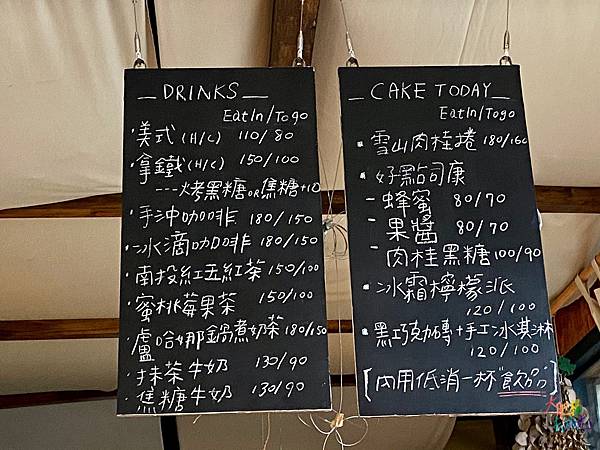 — DRINKS —
EatIn/Togo
·美式(H/C) 110/80
·拿鐵(H/C) 150/100
---烤黑糖OR焦糖+10
·手沖咖啡 180/150
·冰滴咖啡 180/150
·南投紅玉紅茶 150/100
·蜜桃莓果茶 150/100
·盧哈娜鍋煮奶茶 180/150
·抹茶牛奶 130/90
·焦糖牛奶 130/90
— CAKE TODAY —
EatIn/Togo
·雪山肉桂捲 180/160
·好點司康
-蜂蜜 80/70
-果醬 80/70
-肉桂黑糖 100/90
·冰霜檸檬派
120/100
·黑巧克力磚+手工冰淇淋
120/100
【內用低消一杯"飲品"】